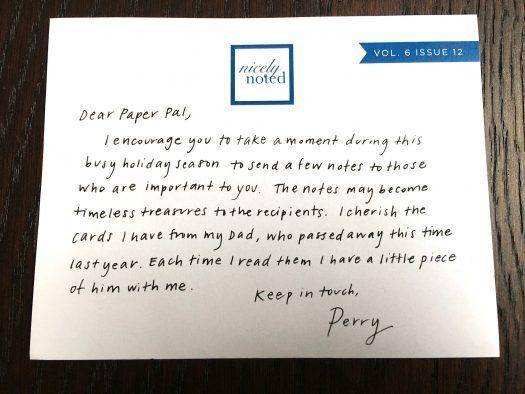 nicely
noted
VOL. 6 ISSUE 12
Dear Paper Pal,
I encourage you to take a moment during this
busy holiday season to send a few notes to those
who are important to you. The notes may become
timeless treasures to the recipients. I cherish the
cards I have from my Dad, who passed away this time
last year. Each time I read them I have a little piece
of him with me.
Keep in touch,
Perry